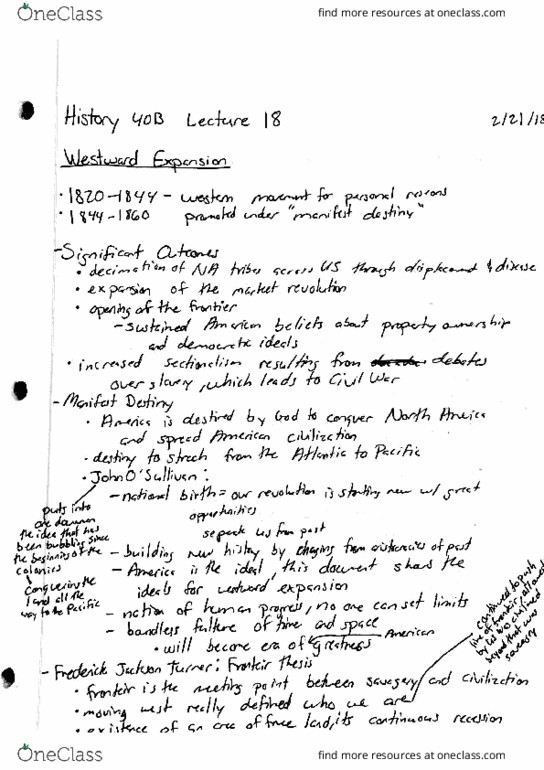 OneClass
find more resources at oneclass.com
History 40B Lecture 18
2/21/18
Westward Expansion
• 1820-1844 - western movement for personal reasons
• 1844-1860 promoted under "manifest destiny"
- Significant Outcomes
• decimation of NA tribes across US through displacement & disease
• expansion of the market revolution
• opening of the frontier
- sustained American beliefs about property ownership
and democratic ideals
• increased sectionalism resulting from debates
over slavery, which leads to Civil War
- Manifest Destiny
• America is destined by God to conquer North America
and spread American civilization
• destiny to strech from the Atlantic to Pacific
• John O'Sullivan:
- national birth = our revolution is starting new w/ great
opportunities
seperate us from past
puts into
one document
the idea that has
been bubbling since
the beginning of the
colonies
conquering the
land all the
way to the Pacific
- building new history by changing from of past
- America is the ideal, this document shares the
ideals for westward expansion
- nation of human progress, no one can set limits
- boundless future of time and space
• will become era of greatness
American
continued to push
line of frontier allowed
by US who claimed
beyond that was
savagery
- Frederick Jackson Turner: Frontier Thesis
• frontier is the meeting point between savagery and civilization
• moving west really defined who we are
• existence of an area of free land, its continuous recession
OneClass
find more resources at oneclass.com